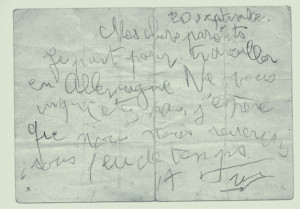 20 septembre
Mes chers parents
Je part pour travailler
en Allemagne Ne vous
inquietez pas, j'espère
que nous nous reverrons
sous peu de temps